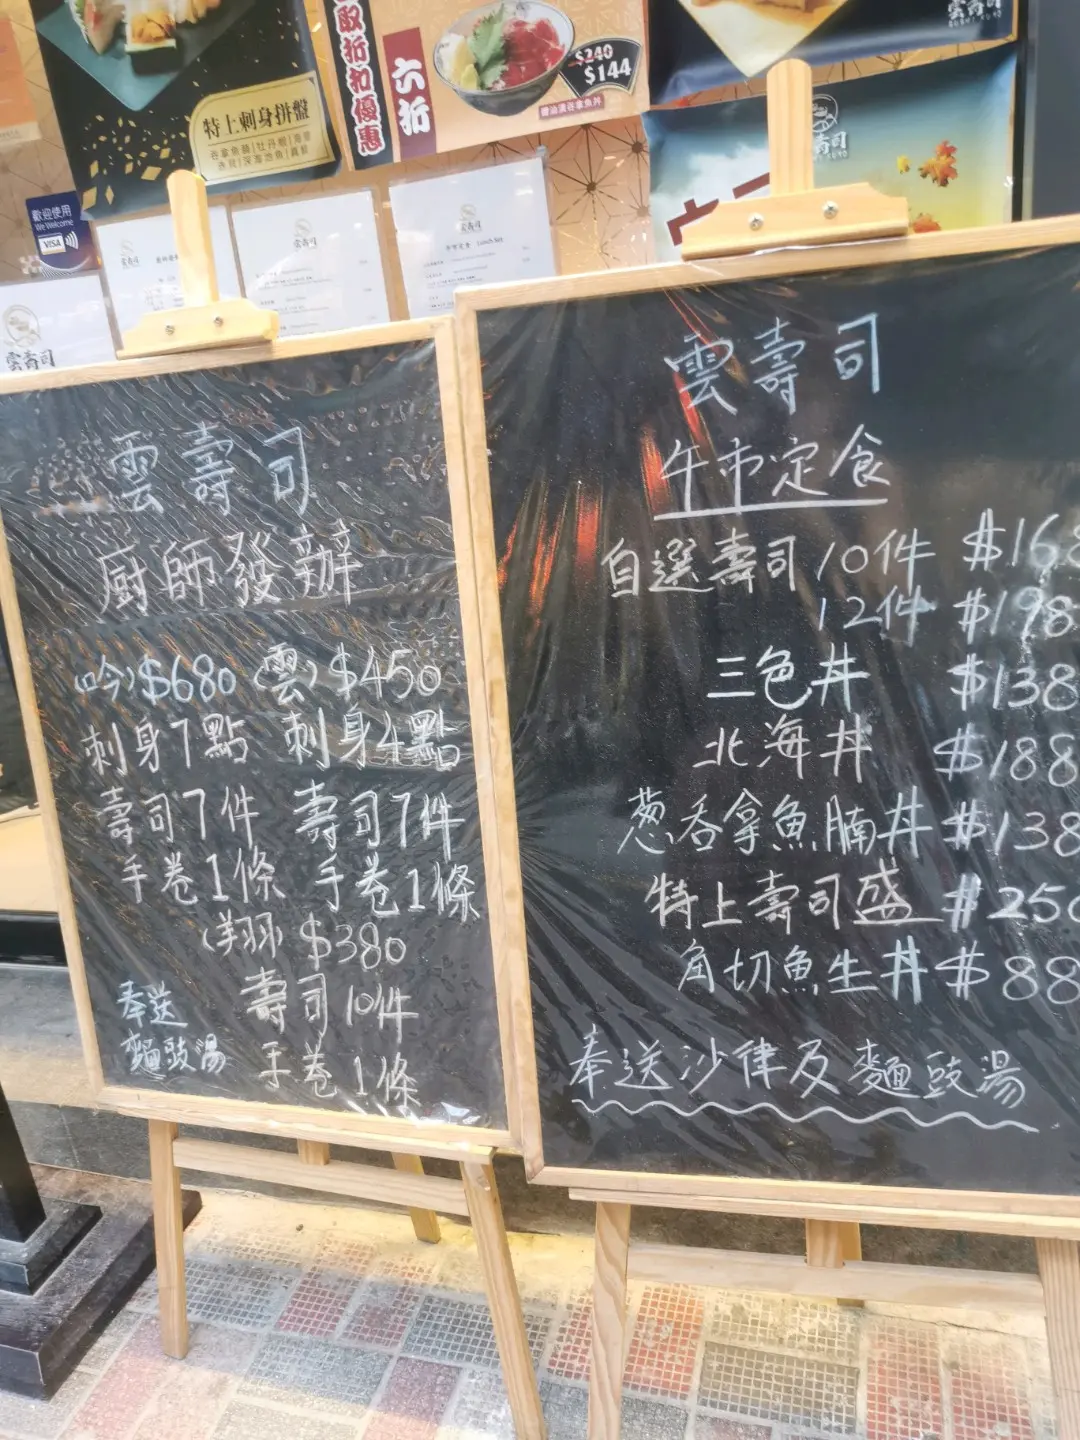 取折扣優惠
六折
$240
$144
醬油漬吞拿魚丼
特上刺身拼盤
歡迎使用
We Welcome
VISA
雲壽司
雲壽司
雲壽司
雲壽司
午市定食 Lunch Set
雲壽司
廚師發辦
(吟) $680
刺身7點
壽司7件
手卷1條
(雲) $450
刺身4點
壽司7件
手卷1條
(翔) $380
壽司10件
手卷1條
奉送
麵豉湯
雲壽司
午市定食
自選壽司10件 $168
12件 $198
三色丼 $138
北海丼 $188
葱吞拿魚腩丼 $138
特上壽司盛 $250
角切魚生丼 $88
奉送沙律及麵豉湯